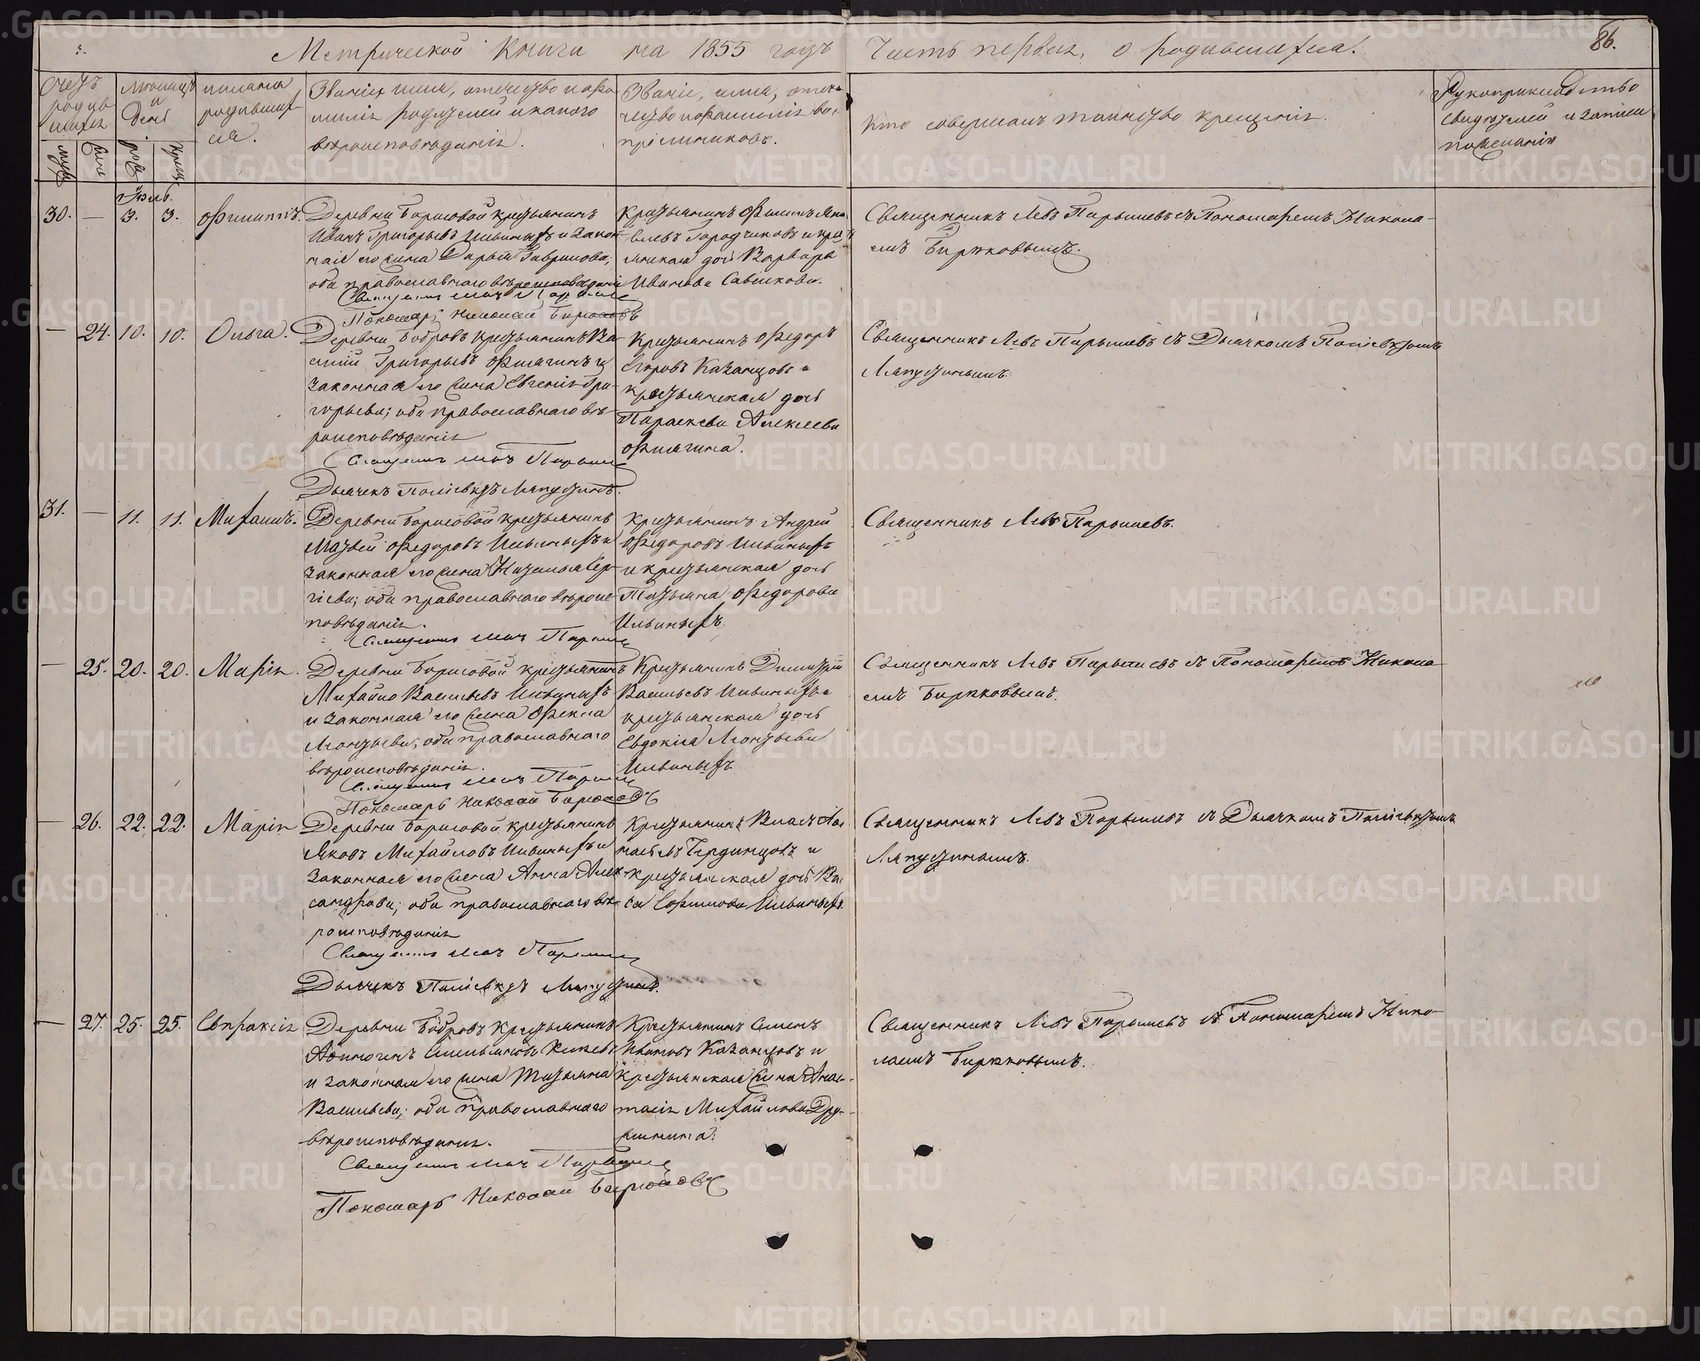 Метрической Книги на 1855 годъ Часть первая, о родившихся.
86.
Счетъ родившихся
муж.
жен.
Месяцъ и день
рож.
крещ.
имена родившихся.
Званіе, имя, отечество и фамилія родителей и какого вероисповеданія.
Званіе, имя, отечество и фамилія воспріемниковъ.
Кто совершалъ таинство крещенія.
Рукоприкладство свидетелей о записи по желанію
30. — 3. 3. Филиппъ.
Деревни Борисовой крестьянинъ
Иванъ Григорьевъ Ильиныхъ и закон-
ная его жена Дарья Гаврилова,
оба православнаго вероисповеданія
Священникъ Левъ Парышевъ
Пономарь Николай Бирюковъ
Крестьянинъ Филиппъ Яко-
влевъ Городчиковъ и крест-
янская дочь Варвара
Иванова
Священникъ Левъ Парышевъ съ Пономаремъ Никола-
емъ Бирюковымъ.
— 24. 10. 10. Ольга.
Деревни Бобровъ крестьянинъ Ва-
силий Григорьевъ Филягинъ и
законная его жена Евгенія Гри-
горьева; оба православнаго ве-
роисповеданія
Священникъ Левъ Парышевъ
Дьячекъ Полиевктъ Ляпустинъ.
Крестьянинъ Федоръ
Егоровъ Казанцовъ и
крестьянская дочь
Параскева Алексеева
Филягина.
Священникъ Левъ Парышевъ съ Дьячкомъ Полиевктомъ
Ляпустинымъ.
31. — 11. 11. Михаилъ.
Деревни Борисовой крестьянинъ
Матвей Федоровъ Ильиныхъ и
законная его жена Наталья Сер-
гіева; оба православнаго вероис-
поведанія.
Священникъ Левъ Парышевъ
Крестьянинъ Андрей
Федоровъ Ильиныхъ
и крестьянская дочь
Татьяна Федорова
Ильиныхъ.
Священникъ Левъ Парышевъ.
— 25. 20. 20. Марія.
Деревни Борисовой крестьянинъ
Михайло Васильевъ Ильиныхъ
и законная его жена Фекла
Леонтьева; оба православнаго
вероисповеданія.
Священникъ Левъ Парышевъ
Пономарь Николай Бирюковъ
Крестьянинъ Димитрій
Васильевъ Ильиныхъ и
крестьянская дочь
Евдокія Леонтьева
Ильиныхъ.
Священникъ Левъ Парышевъ съ Пономаремъ Никола-
емъ Бирюковымъ.
— 26. 22. 22. Марія
Деревни Борисовой крестьянинъ
Яковъ Михайловъ Ильиныхъ и
законная его жена Анна Алек-
сандрова; оба православнаго ве-
роисповеданія
Священникъ Левъ Парышевъ
Дьячекъ Полиевктъ Ляпустинъ.
Крестьянинъ Власъ
Бердинцовъ и
крестьянская дочь
Ильиныхъ.
Священникъ Левъ Парышевъ съ Дьячкомъ Полиевктомъ
Ляпустинымъ.
— 27. 25. 25. Евпраксія
Деревни Бобровъ Крестьянинъ
и законная его жена Татьяна
Васильева; оба православнаго
вероисповеданія.
Священникъ Левъ Парышевъ
Пономарь Николай Бирюковъ
Крестьянинъ Семенъ
Ивановъ Казанцовъ и
крестьянская жена Анас-
тасія Михайлова Дру-
жинина.
Священникъ Левъ Парышевъ съ Пономаремъ Нико-
лаемъ Бирюковымъ.
METRIKI.GASO-URAL.RU